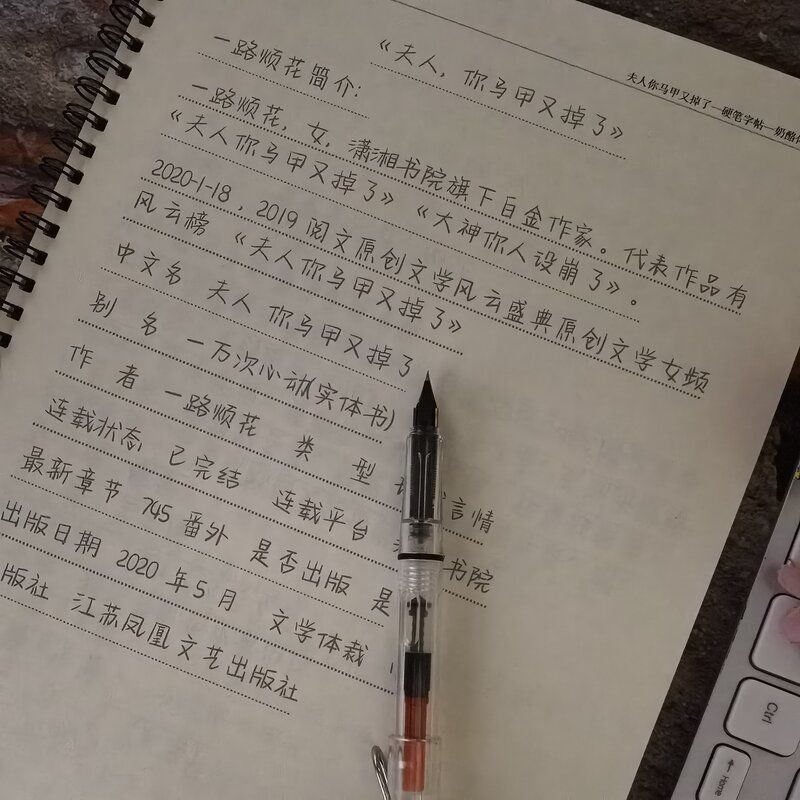 夫人你马甲又掉了—硬笔字帖—奶酪
《夫人,你马甲又掉了》
一路烦花简介:
一路烦花,女,潇湘书院旗下白金作家。代表作品有
《夫人你马甲又掉了》《大神你人设崩了》。
2020-1-18,2019阅文原创文学风云盛典原创文学女频
风云榜《夫人你马甲又掉了》
中文名 夫人 你马甲又掉了
别 名 一万次心动(实体书)
作 者 一路烦花 类 型 言情
连载状态 已完结 连载平台 书院
最新章节 745 番外 是否出版 是
出版日期 2020 年5月 文学体裁
版社 江苏凤凰文艺出版社
Ctrl
Home